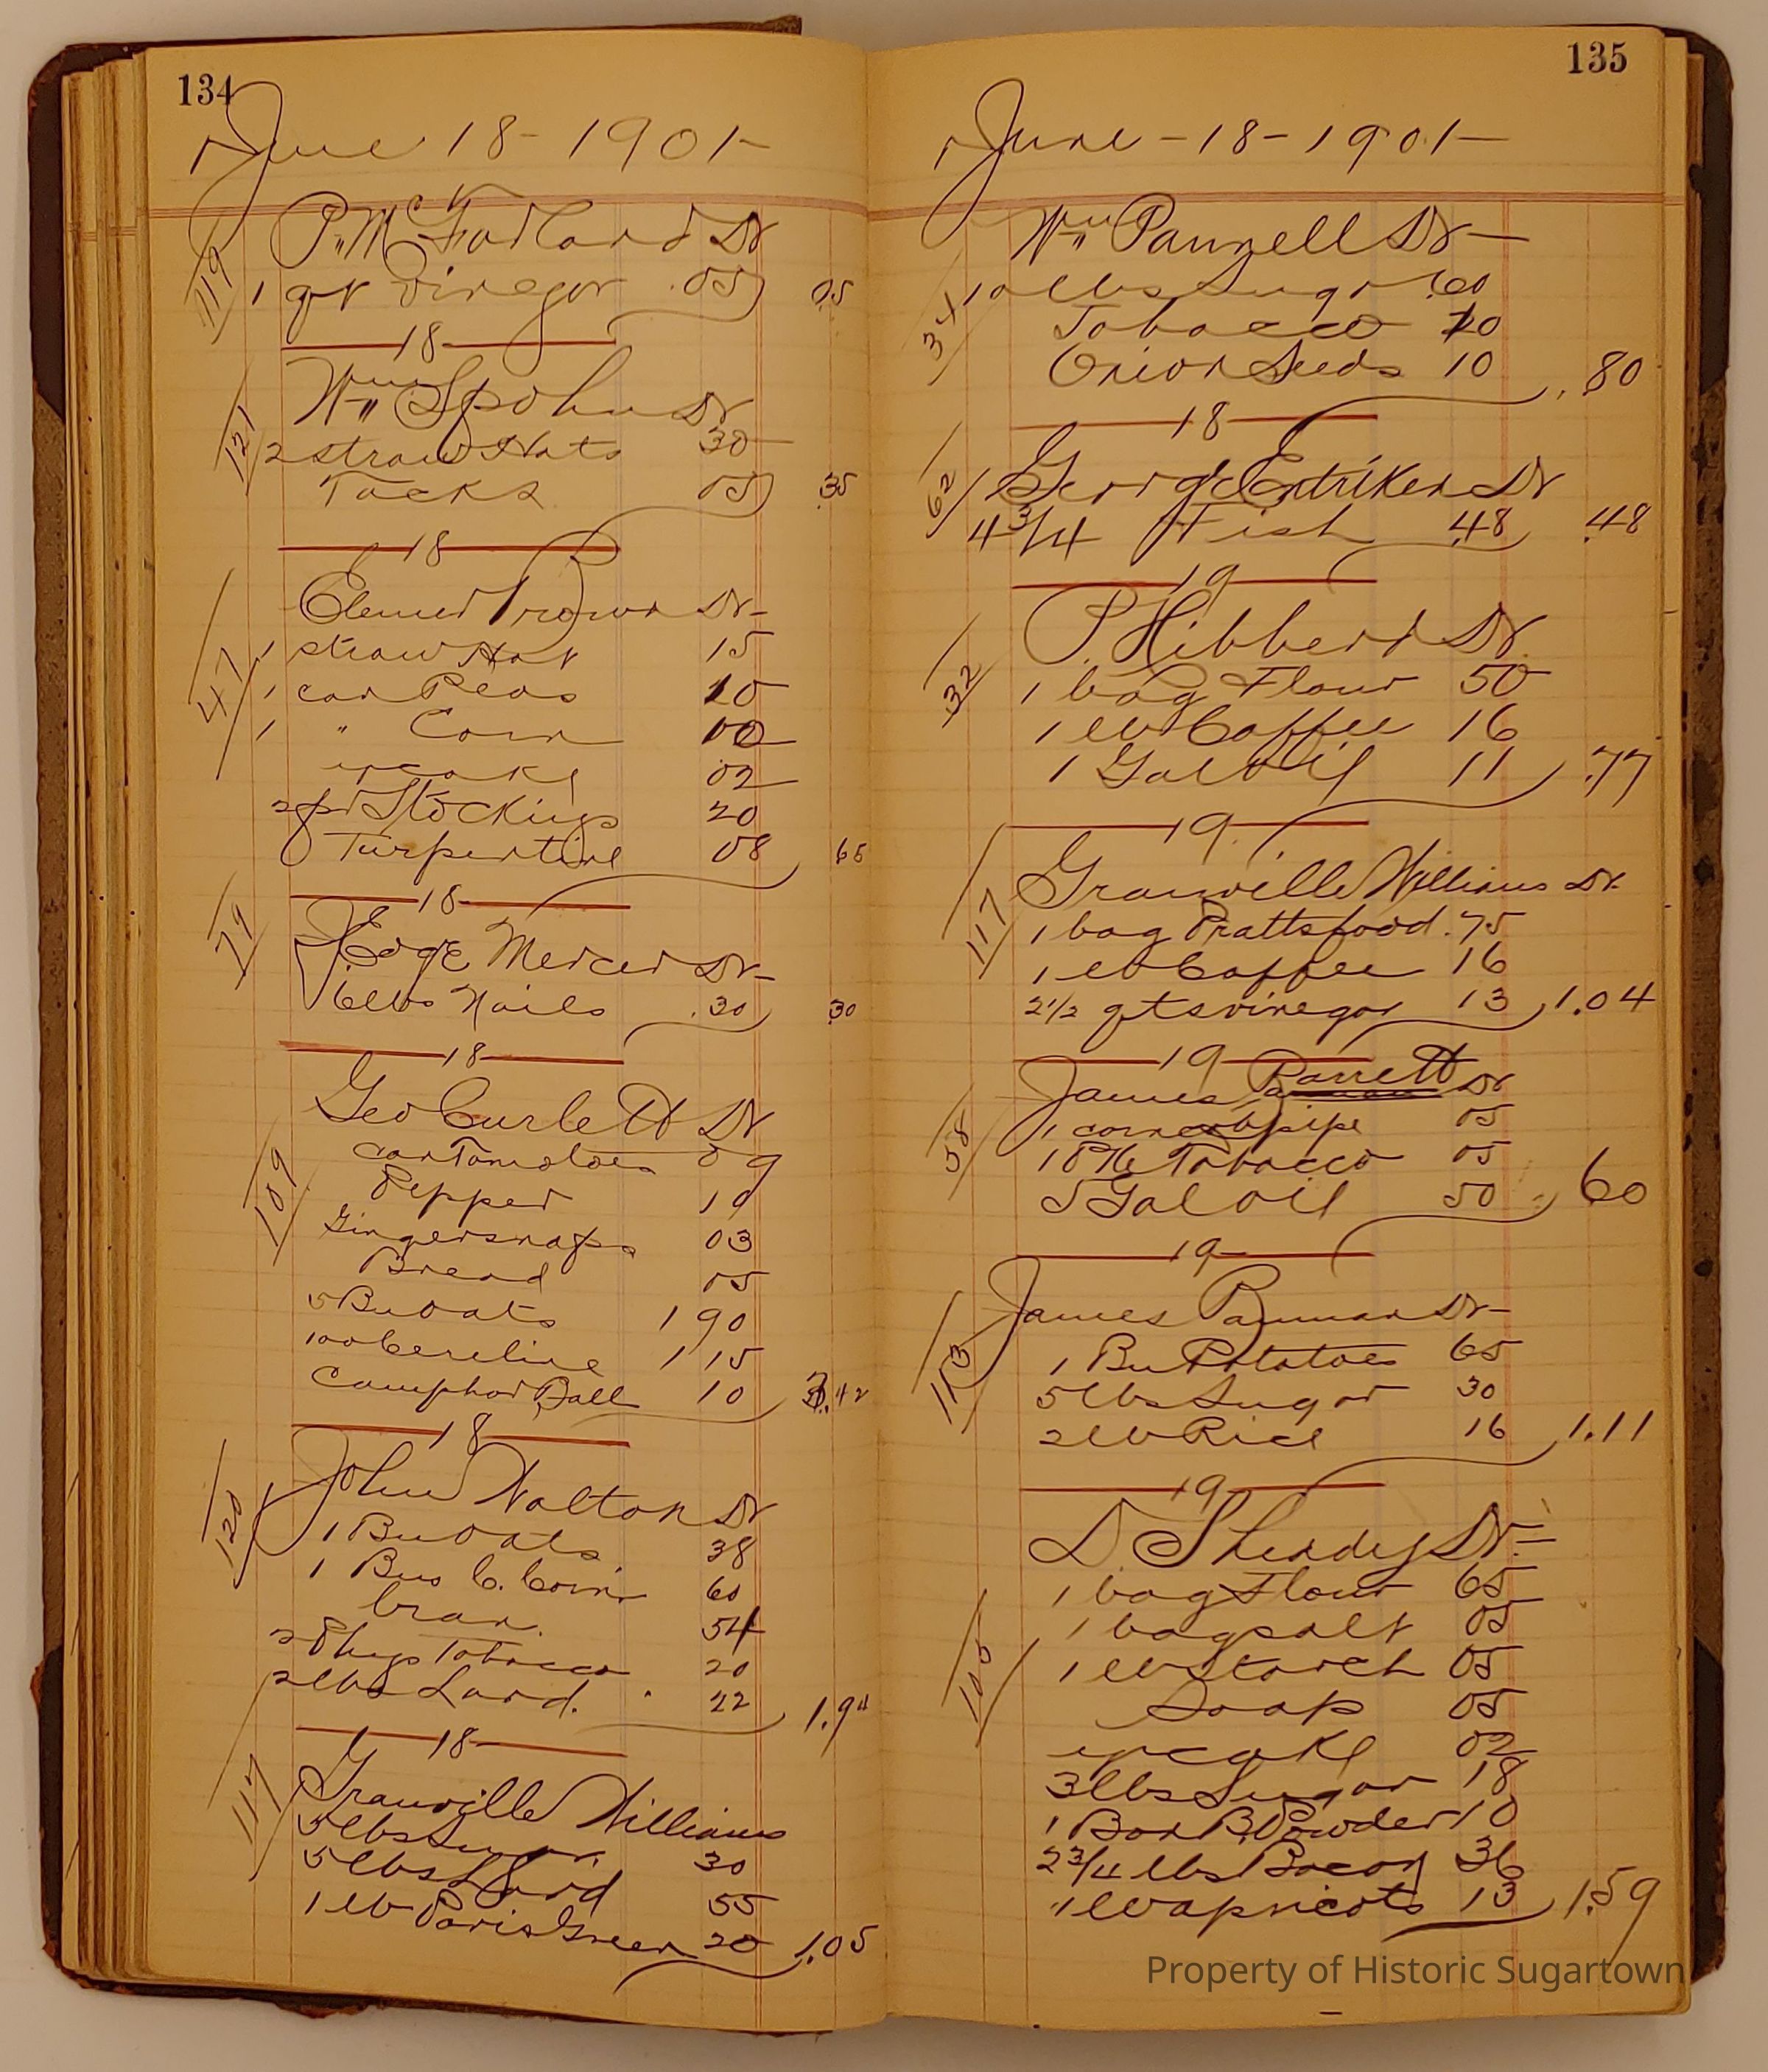 134
June 18 - 1901 -
P. McFarland Dr
119
1 qt Vinegar .05 05
18
Wm Spohn Dr
121
2 straw Hats 30
Tacks 05 .35
18
Elmer Brown Dr -
47
1 straw Hat 15
1 can Peas 10
1 " Corn 10
yr cake 02
2 pr Stockings 20
Turpentine 08 65
18
79
J Edge Mercer Dr -
6 lbs Nails .30 .30
18
Geo Curlett Dr
109
can Tomatoes 09
Pepper 10
Gingersnaps 03
Bread 05
5 Bu Oats 1 90
100 Cereline 1 15
Camphor Ball 10 3.42
18
John Walton Dr
120
1 Bu Oats 38
1 Bus C. Corn 60
bran. 54
2 Plugs Tobacco 20
2 lbs Lard. 22 1.94
18
117
Granville Williams
5 lbs Sugar 30
5 lbs Lard 55
1 lb Paris Green 20 1.05
135
June - 18 - 1901 -
Wm Pannell Dr -
34
10 lbs Sugar .60
Tobacco 10
Onion Seeds 10 .80
18
62
George Entriken Dr
4 3/4 Fish .48 .48
19
P. Hibberd Dr.
32
1 bag Flour 50
1 lb Coffee 16
1 Gal Oil 11 .77
19
117
Granville Williams Dr.
1 bag Pratts food .75
1 lb Coffee 16
2 1/2 qts vinegar 13 1.04
19
James Barrett Dr
58
1 corncob pipe 05
1 Pkg Tobacco 05
5 Gal Oil 50 60
19
James Banman Dr -
113
1 Bu Potatoes 65
5 lbs Sugar 30
2 lb Rice 16 1.11
19
D. Sheady Dr -
105
1 bag Flour 65
1 bag salt 05
1 lb Starch 05
Soap 05
yr cake 02
3 lbs Sugar 18
1 Box B. Powder 10
2 3/4 lbs Bacon 36
1 lb apricots 13 1.59
Property of Historic Sugartown